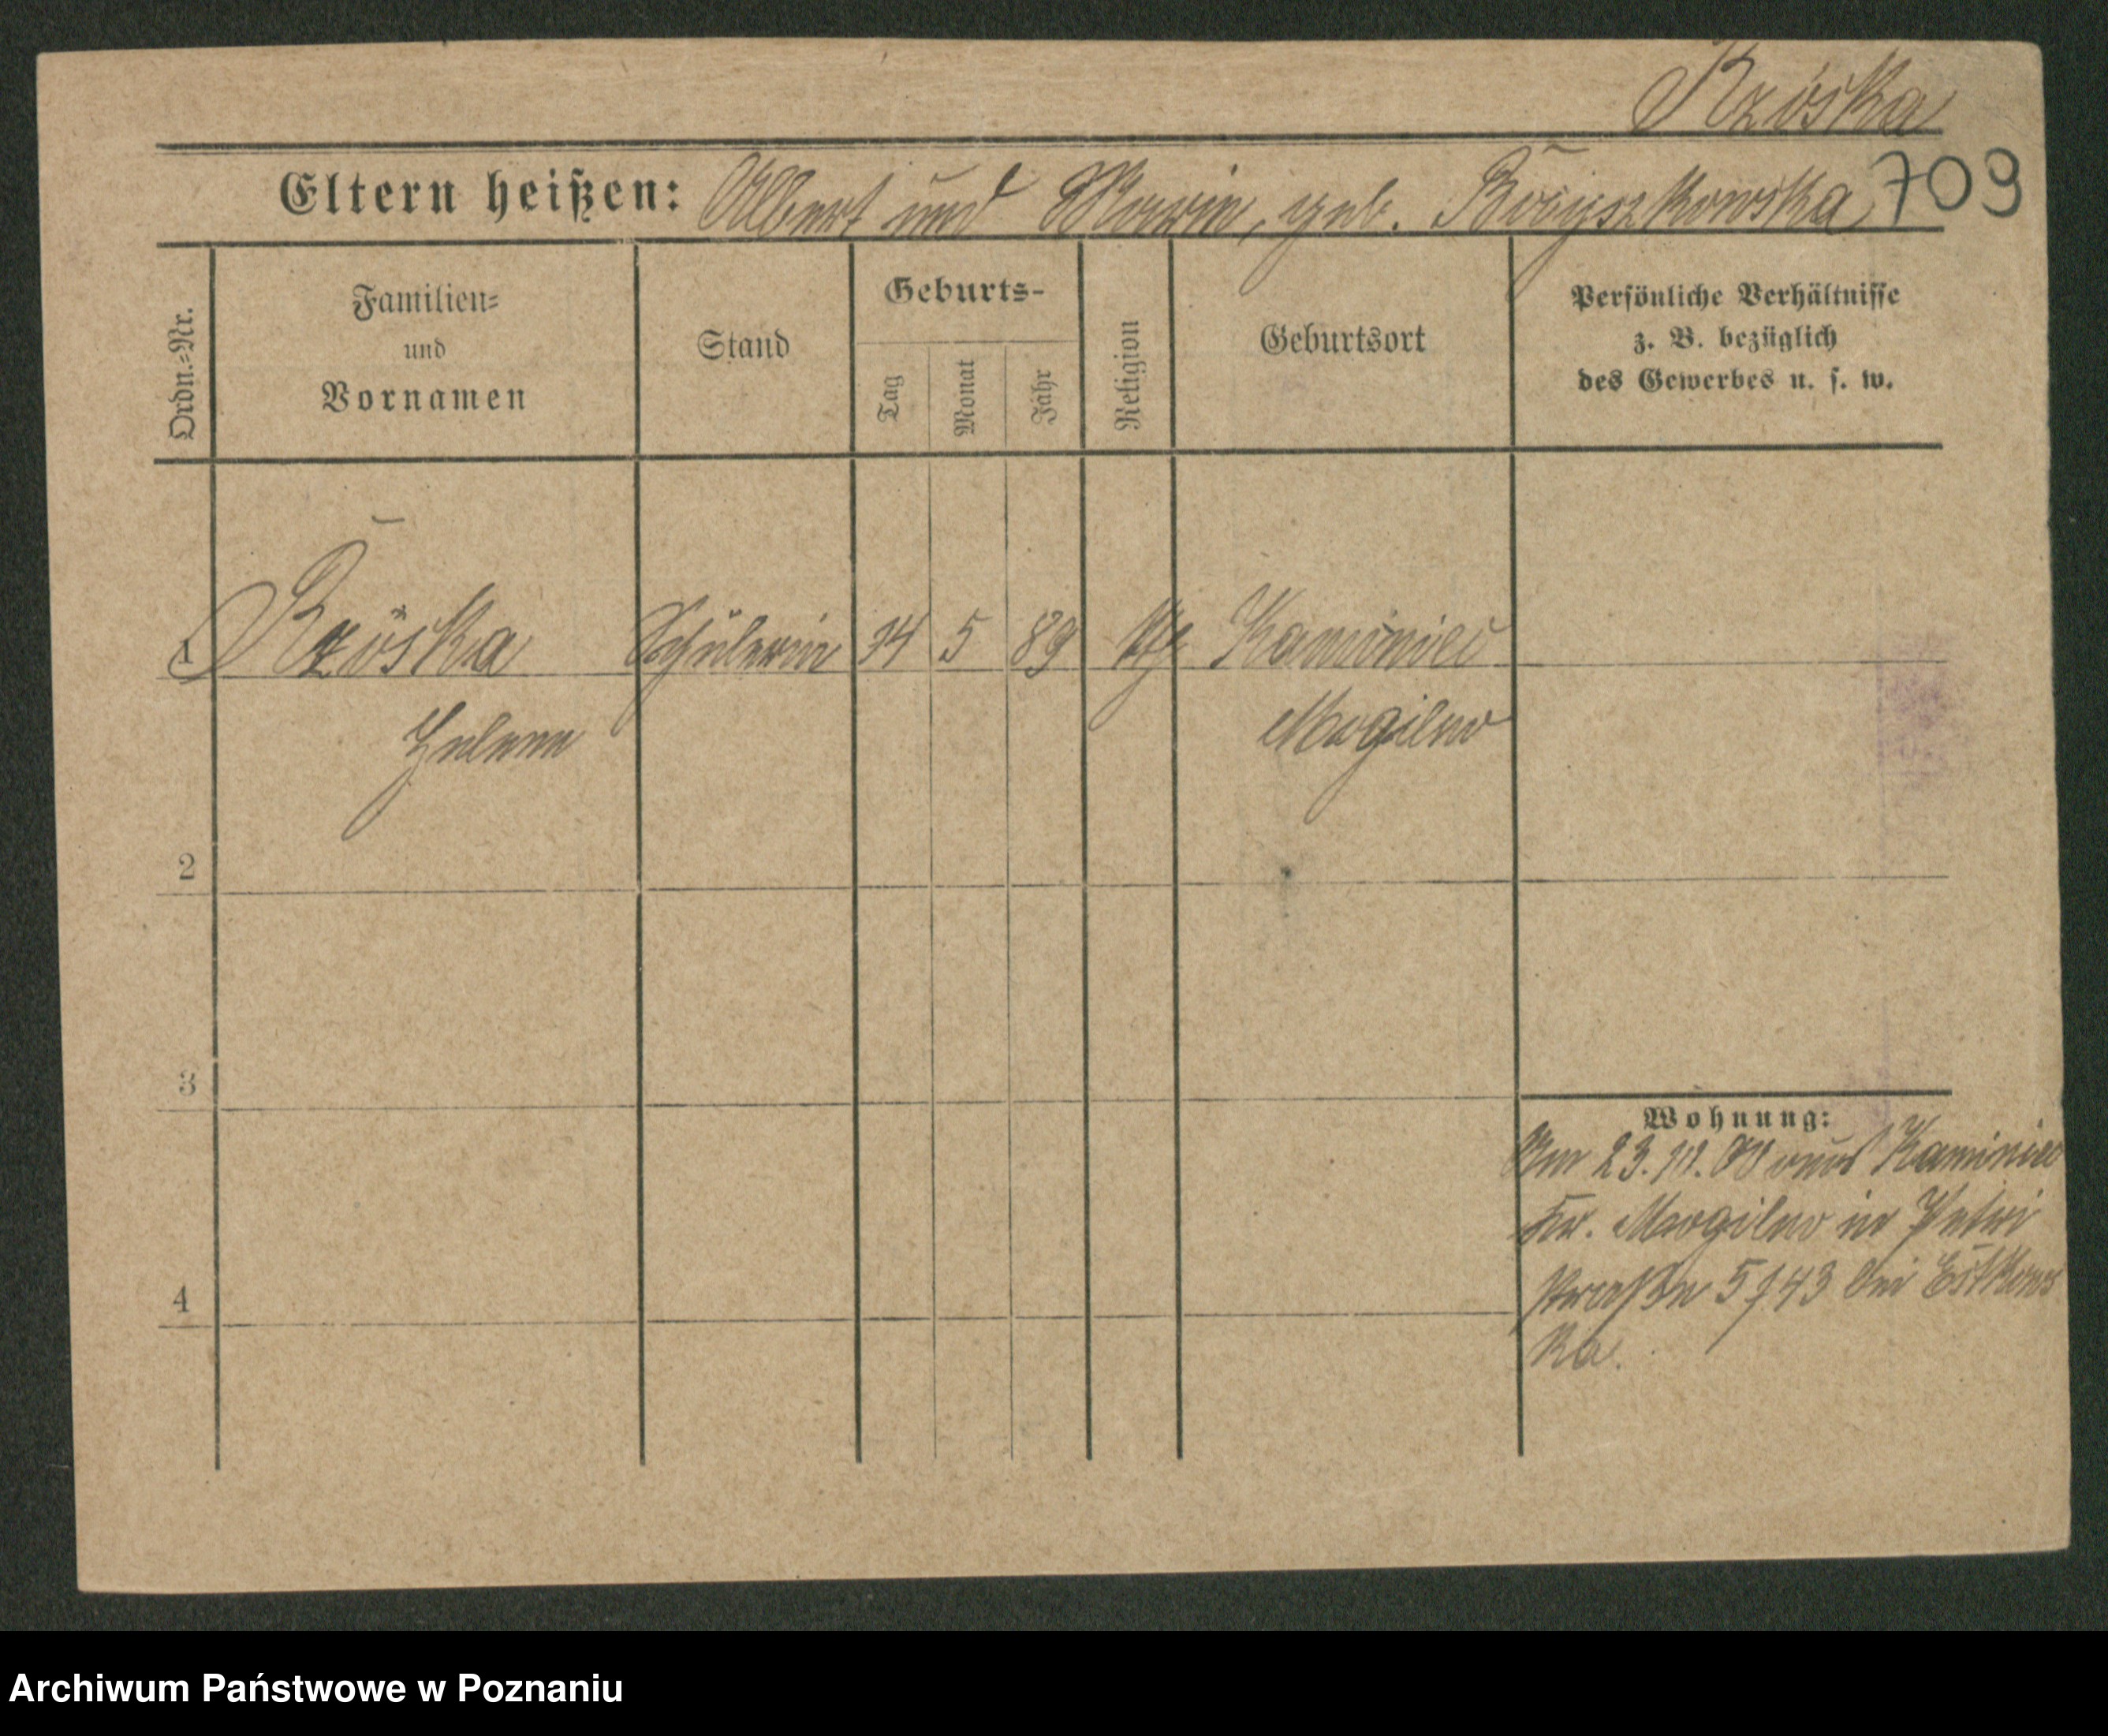 Rzóska
Eltern heißen: Albert und Marie, geb. 709
Ordn.=Nr.
Familien=
und
Vornamen
Stand
Geburts-
Tag
Monat
Jahr
Religion
Geburtsort
Persönliche Verhältnisse
z. B. bezüglich
des Gewerbes u. s. w.
1 Rzóska Schülerin 14 5 89 Kaminiec
Helene Mogilno
2
3
4
Wohnung:
Am 23. 10. 00 aus Kaminiec
Kr. Mogilno in Petri
straße 5/43 bei
ka.
Archiwum Państwowe w Poznaniu